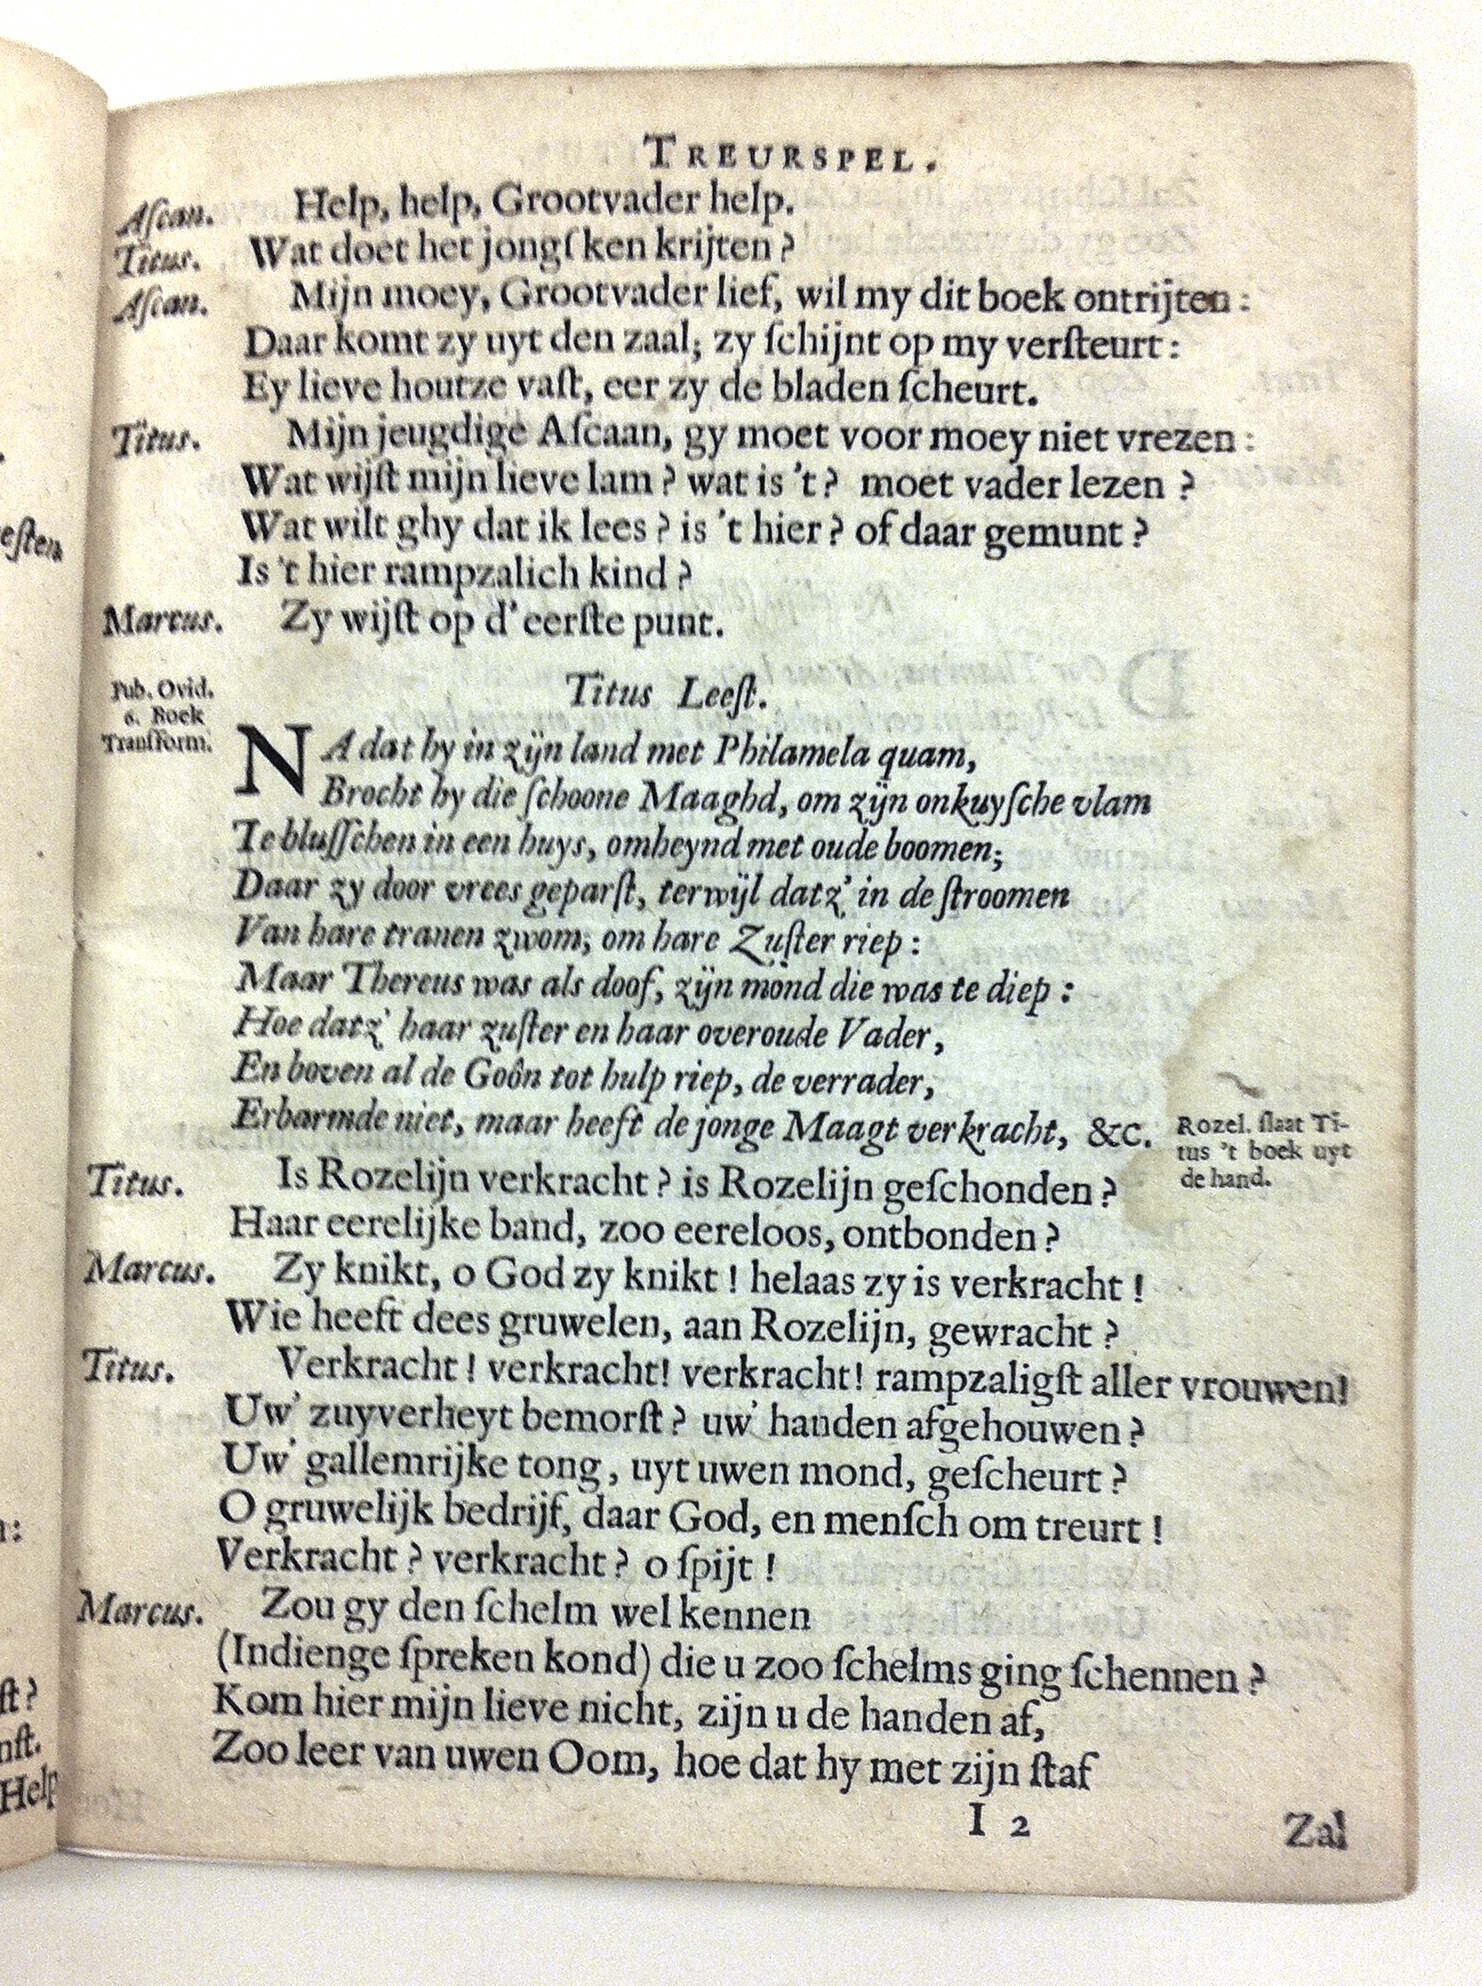 TREURSPEL.
Aſcan. Help, help, Grootvader help.
Titus. Wat doet het jongſken krijten?
Aſcan. Mijn moey, Grootvader lief, wil my dit boek ontrijten:
Daar komt zy uyt den zaal; zy ſchijnt op my verſteurt:
Ey lieve houtze vaſt, eer zy de bladen ſcheurt.
Titus. Mijn jeugdige Aſcaan, gy moet voor moey niet vrezen:
Wat wijſt mijn lieve lam? wat is 't? moet vader lezen?
Wat wilt ghy dat ik lees? is 't hier? of daar gemunt?
Is 't hier rampzalich kind?
Marcus. Zy wijſt op d'eerſte punt.
Pub. Ovid.
6. Boek
Tranſform.
Titus Leeſt.
NA dat hy in zijn land met Philamela quam,
Brocht hy die ſchoone Maaghd, om zijn onkuyſche vlam
Te bluſſchen in een huys, omheynd met oude boomen;
Daar zy door vrees geparſt, terwijl datz' in de ſtroomen
Van hare tranen zwom; om hare Zuſter riep:
Maar Thereus was als doof, zijn mond die was te diep:
Hoe datz' haar zuſter en haar overoude Vader,
En boven al de Goôn tot hulp riep, de verrader,
Erbarmde niet, maar heeft de jonge Maagt verkracht, &c.
Rozel. ſlaat Ti-
tus 't boek uyt
de hand.
Titus. Is Rozelijn verkracht? is Rozelijn geſchonden?
Haar eerelijke band, zoo eereloos, ontbonden?
Marcus. Zy knikt, o God zy knikt! helaas zy is verkracht!
Wie heeft dees gruwelen, aan Rozelijn, gewracht?
Titus. Verkracht! verkracht! verkracht! rampzaligſt aller vrouwen!
Uw' zuyverheyt bemorſt? uw' handen afgehouwen?
Uw' gallemrijke tong, uyt uwen mond, geſcheurt?
O gruwelijk bedrijf, daar God, en menſch om treurt!
Verkracht? verkracht? o ſpijt!
Marcus. Zou gy den ſchelm wel kennen
(Indienge ſpreken kond) die u zoo ſchelms ging ſchennen?
Kom hier mijn lieve nicht, zijn u de handen af,
Zoo leer van uwen Oom, hoe dat hy met zijn ſtaf
I 2
Zal